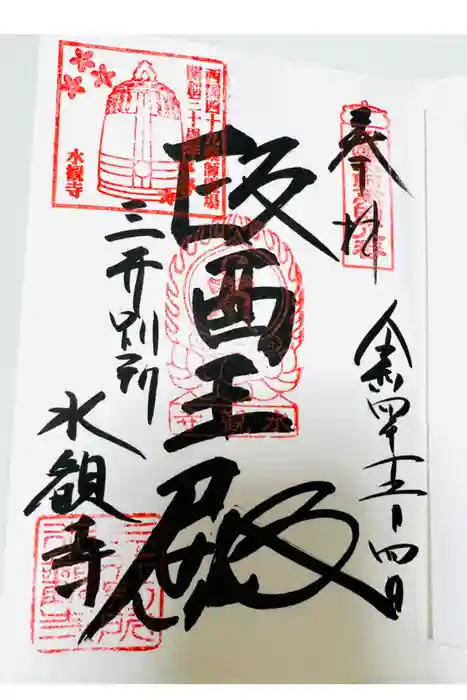 奉拝
令和四年五月四日
醫王殿
三井別所
水観寺
西国四十九薬師霊場
開創三十周年
水観寺